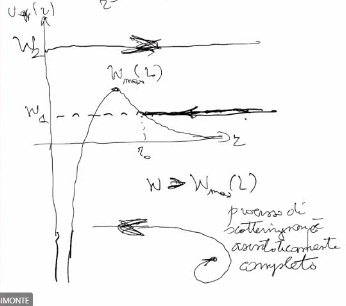 U_eff(r)
W₂
W_max(L)
W₁
r
r₀
W > W_max(L)
processo di
scattering non è
asintoticamente
completo
IMONTE